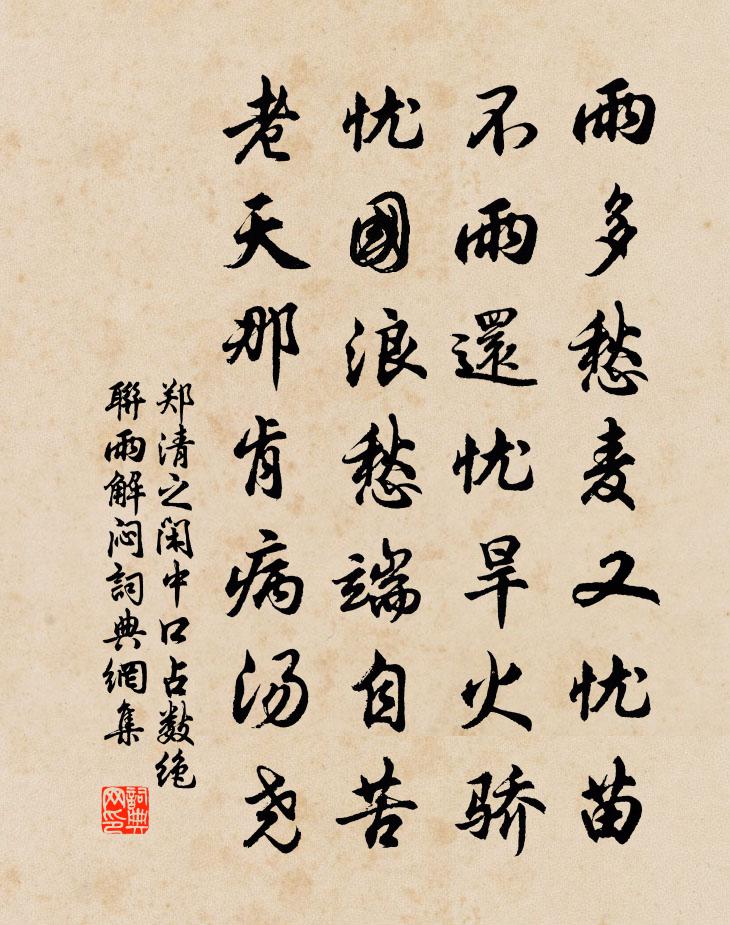 雨多愁麦又忧苗
不雨還忧旱火骄
忧國浪愁端自苦
老天那肯病汤尧
郑清之闲中口占数绝
聯雨解闷詞典網集
詞典网印